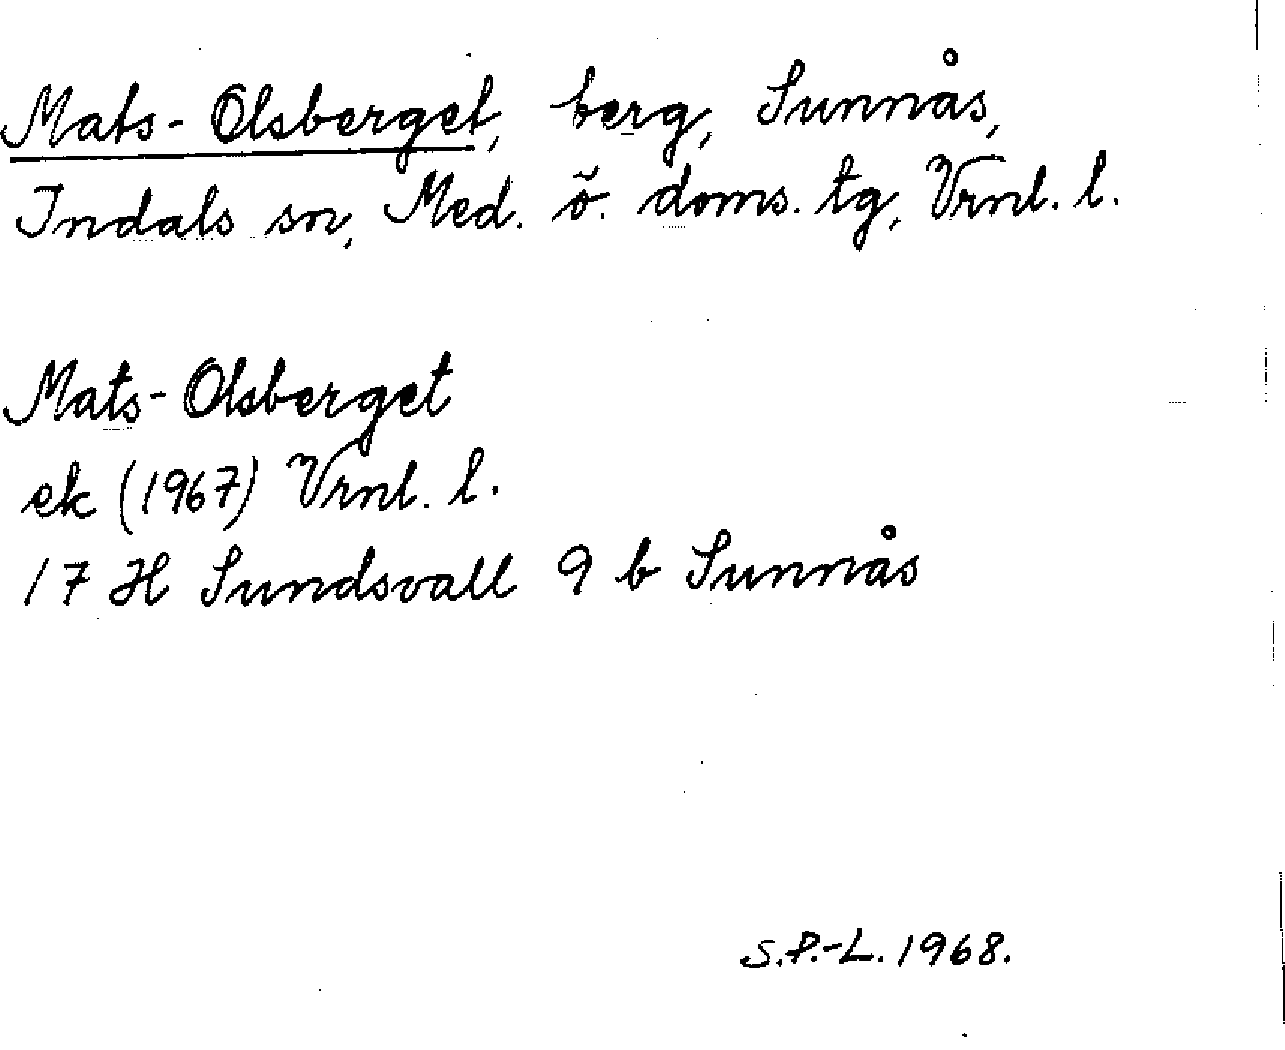 Mats-Olsberget, berg, Sunnås,
Indals sn, Med. ö. doms. tg, Vrnl. l.
Mats-Olsberget
ek (1967) Vrnl. l.
17 H Sundsvall 9 b Sunnås
S.P.-L. 1968.